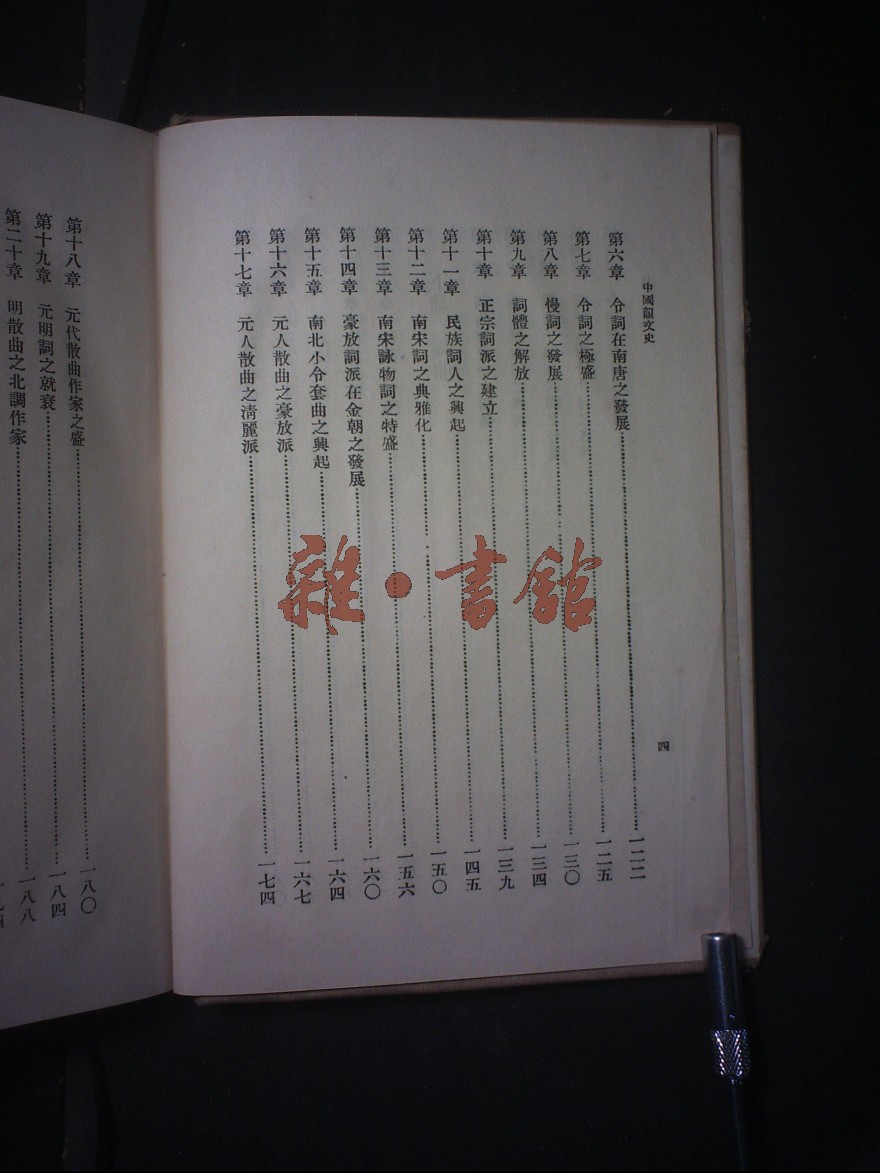 中國韻文史
第六章 令詞在南唐之發展……一二二
第七章 令詞之極盛……一二五
第八章 慢詞之發展……一三〇
第九章 詞體之解放……一三四
第十章 正宗詞派之建立……一三九
第十一章 民族詞人之興起……一四五
第十二章 南宋詞之典雅化……一五〇
第十三章 南宋詠物詞之特盛……一五六
第十四章 豪放詞派在金朝之發展……一六〇
第十五章 南北小令套曲之興起……一六四
第十六章 元人散曲之豪放派……一六七
第十七章 元人散曲之清麗派……一七四
四
第十八章 元代散曲作家之盛……一八〇
第十九章 元明詞之就衰……一八四
第二十章 明散曲之北調作家……一八八
雜·書館